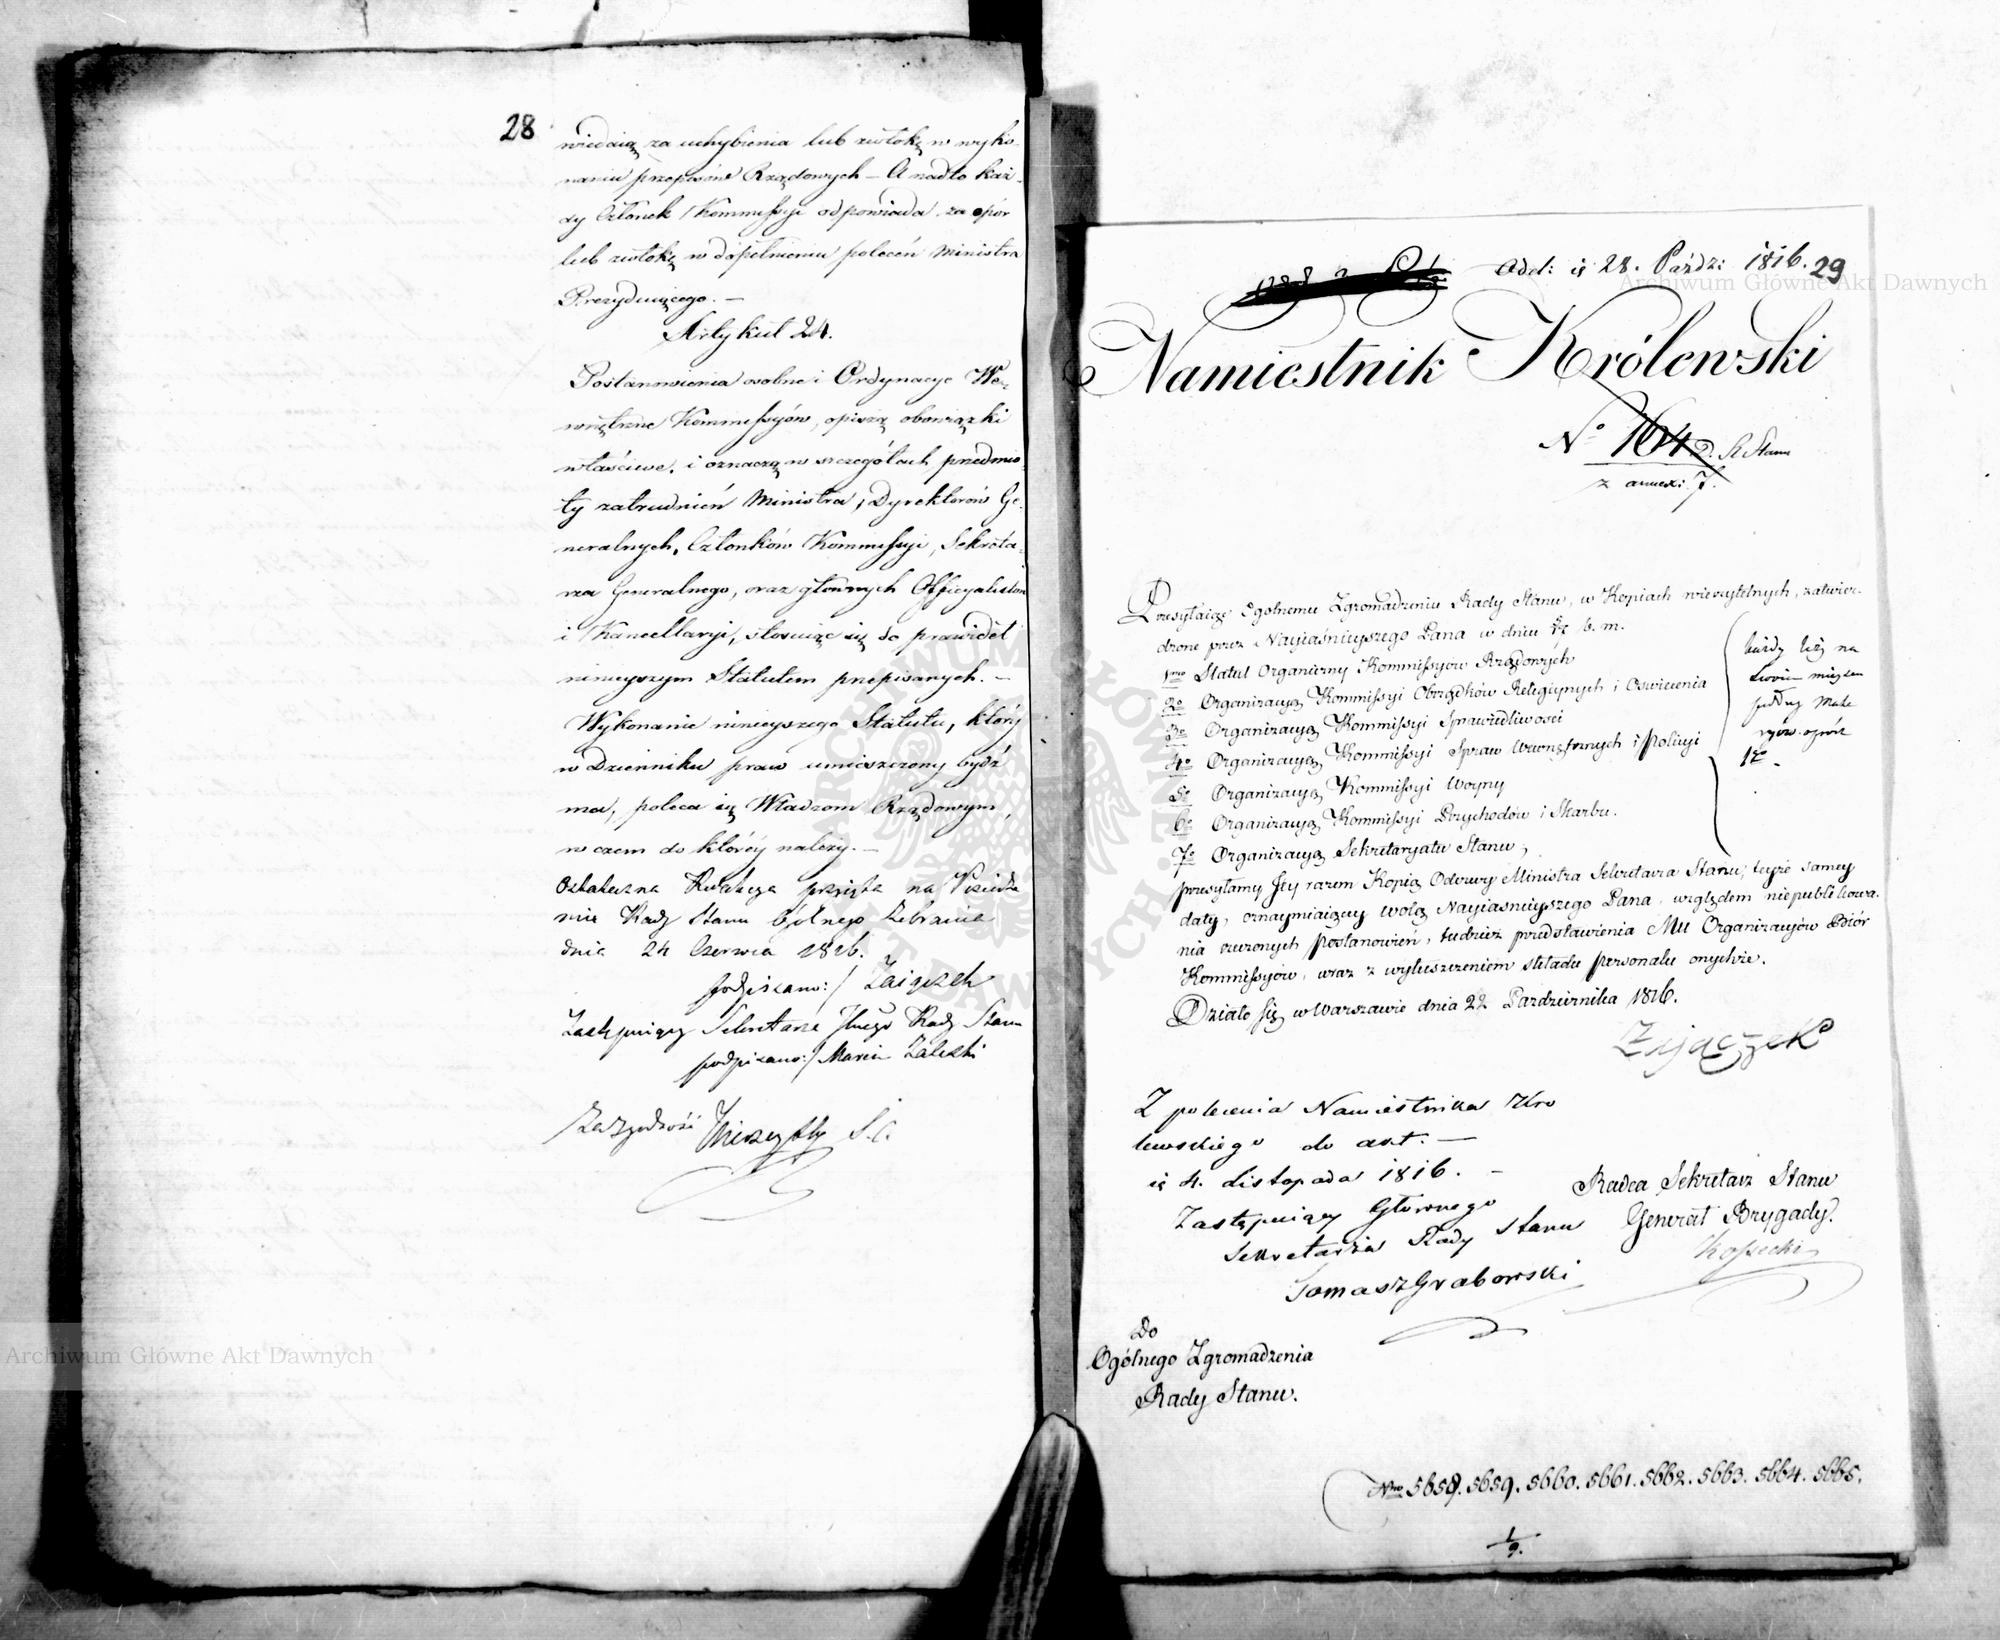 28
wiedaią za uchybienia lub zwłokę w wyko-
naniu przepisów Rządowych – A nadto każ-
dy Członek Kommissyi odpowiada za opór
lub zwłokę w dopełnieniu poleceń Ministra
Prezyduiącego. –
Artykuł 24.
Postanowienia osobne i Ordynacye We-
wnętrzne Kommissyów, opiszą obowiązki
właściwe, i oznaczą w szczegółach przedmio-
ty zatrudnień Ministra, Dyrektorów Ge-
neralnych, Członków Kommissyi, Sekreta-
rza Generalnego, oraz głównych Officyalistów
i Kancellaryi, stosuiąc się do prawideł
ninieyszym Statutem przepisanych. –
Wykonanie ninieyszego Statutu, który
w Dzienniku praw umieszczony bydź
ma, poleca się Władzom Rządowym,
w czem do któréy należy. –
Ostateczna Redakcya przyięta na Posiedze
niu Rady Stanu Ogólnego Zebrania
dnia 24 Czerwca 1816.
podpisano:/ Zaiączek
Zastępuiący Sekretarza Jlnego Rady Stanu
podpisano:/ Marcin Zaleski
Za Zgodność S.
Odd: is 28. Paźdz: 1816. 29
Namiestnik Królewski
No 1614 D. R Stanu
z annexi 7.
Przesyłaiąc Ogólnemu Zgromadzeniu Rady Stanu, w Kopiach wierzytelnych, zatwier-
dzone przez Nayiaśnieyszego Pana w dniu b. m.
1mo Statut Organiczny Kommissyów Rządowych
2o Organizacyą Kommissyi Obrządków Religiynych i Oświecenia
3o Organizacyą Kommissyi Sprawiedliwości
4o Organizacyą Kommissyi Spraw Wewnętrznych i Policyi
5o Organizacyą Kommissyi Woyny
6o Organizacyą Kommissyi Przychodów i Skarbu.
7o Organizacyą Sekretaryatu Stanu,
każdy leży na
swoim mieyscu
podług Mate
ryów oprócz
1go.
przesyłamy Jey razem Kopią Odezwy Ministra Sekretarza Stanu, teyże samey
daty, oznaymiaiącey wolę Nayiaśnieyszego Pana, względem niepublikowa-
nia rzeczonych postanowień, tudzież przedstawienia Mu Organizacyów Biór
Kommissyów, wraz z wyłuszczeniem składu personalu onychże.
Działo się w Warszawie dnia 22 Pazdziernika 1816.
Zajączek
Z polecenia Namiestnika Kró
lewskiego do akt. –
is 4. Listopada 1816. –
Zastępuiący Głównego
Sekretarza Rady Stanu
Tomasz Grabowski
Radca Sekretarz Stanu
Generał Brygady.
Kossecki
Do
Ogólnego Zgromadzenia
Rady Stanu.
Nro 5658. 5659. 5660. 5661. 5662. 5663. 5664. 5665.
1/9.
Archiwum Główne Akt Dawnych
Archiwum Główne Akt Dawnych
ARCHIWUM GŁÓWNE AKT DAWNYCH